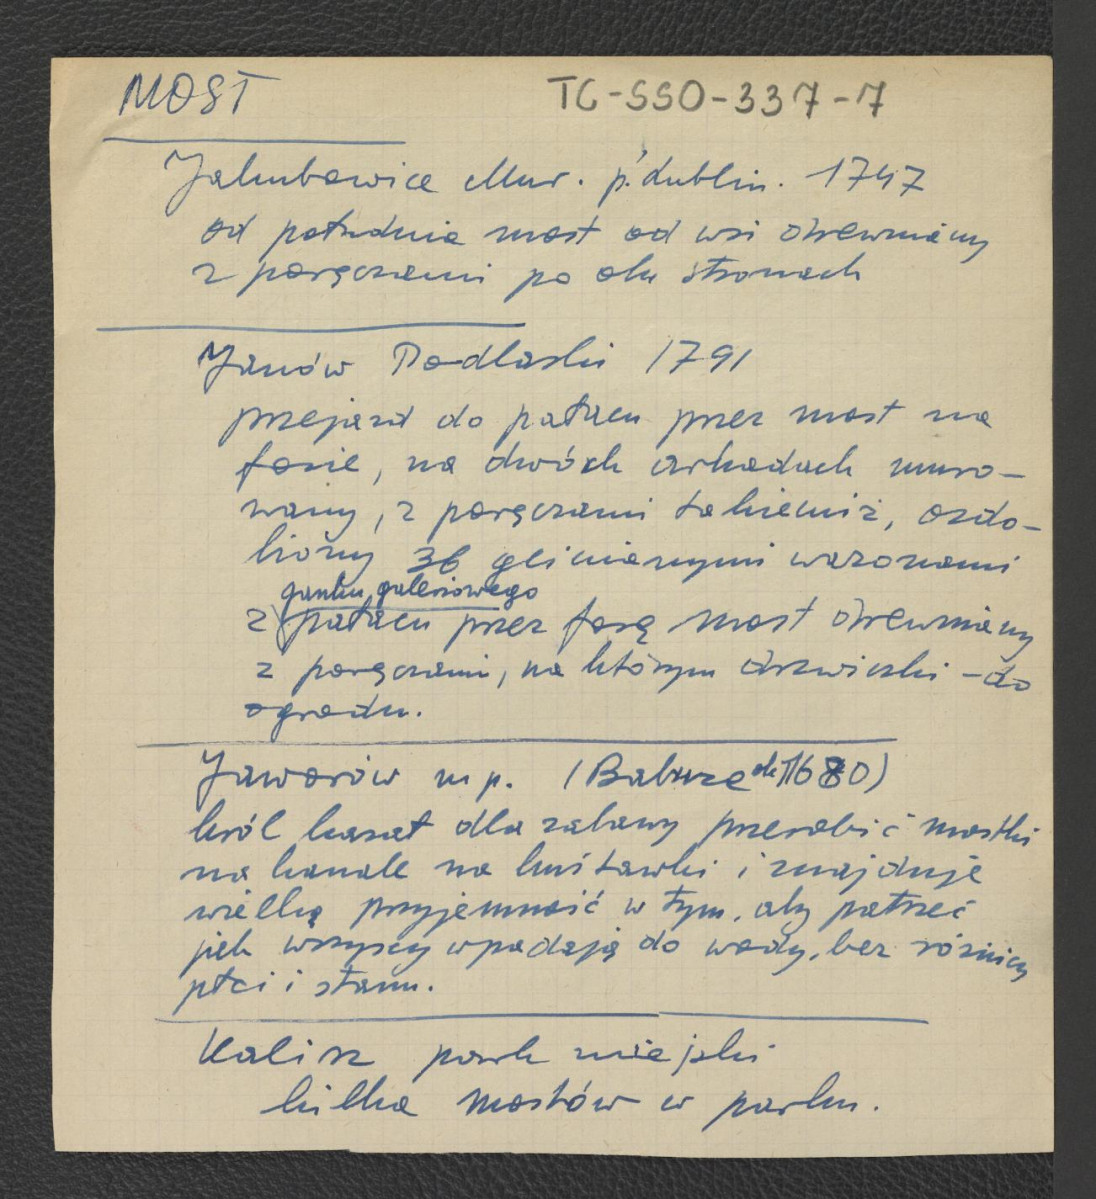 MOST
TG-SSO-337-7
Jakubowice Mur. p. Lublin. 1747
od południa most od wsi drewniany
z poręczami po obu stronach
Janów Podlaski 1791
przejazd do pałacu przez most na
fosie, na dwóch arkadach muro-
wany, z poręczami takiemiż, ozdo-
biony 36 glinianymi wazonami
ganku galeriowego
z pałacu przez fosę most drewniany
z poręczami, na którym drzwiczki - do
ogrodu.
Jaworów m p. ( ok 1680)
król kazał dla zabawy przerobić mostki
na kanale na huśtawki i znajduje
wielką przyjemność w tym, aby patrzeć
jak wszyscy wpadają do wody, bez różnicy
płci i stanu.
Kalisz park miejski
kilka mostów w parku.